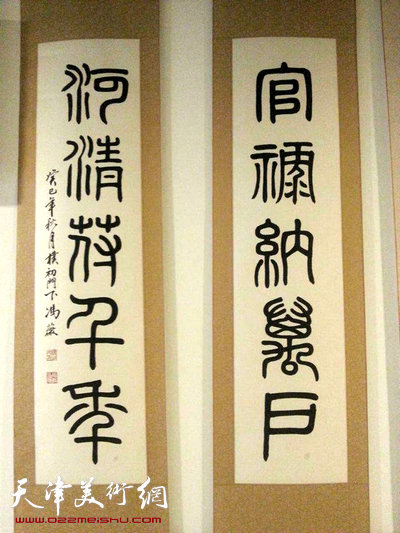 官祿納萬戶
河清千年
癸巳年秋月樸初門下馮
天津美術網
www.022meishu.com